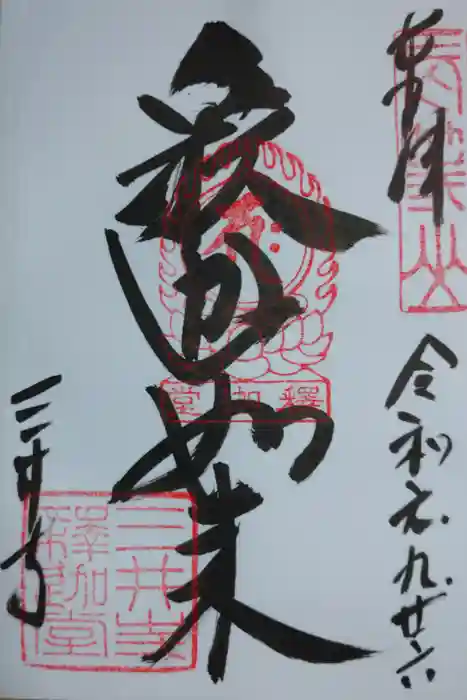 奉拝
長等山
令和元九廿六
釈迦如来
釋迦堂
三井寺
三井寺
釋迦堂